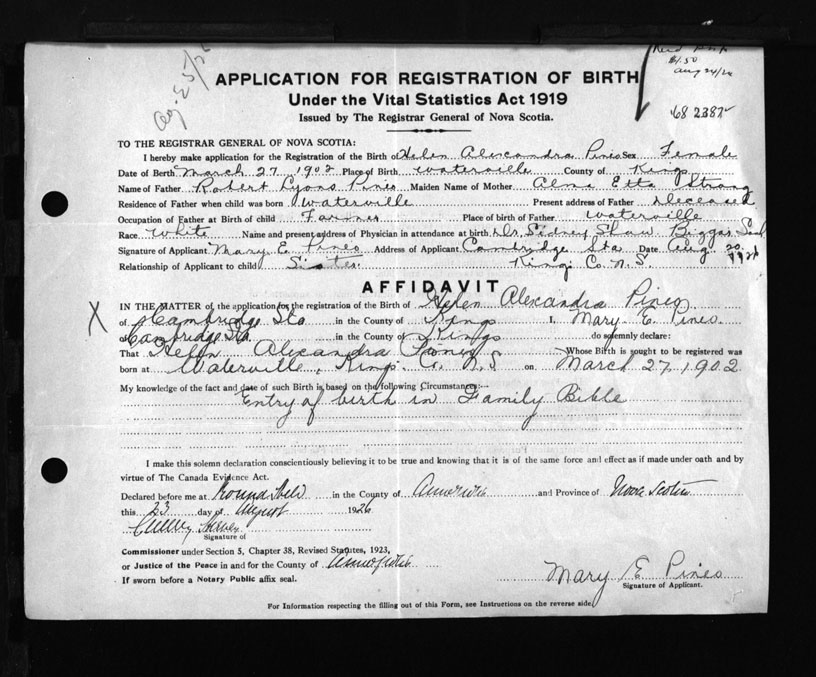 $1.50
Aug 24/26
68 2387
APPLICATION FOR REGISTRATION OF BIRTH
Under the Vital Statistics Act 1919
Issued by The Registrar General of Nova Scotia.
TO THE REGISTRAR GENERAL OF NOVA SCOTIA:
I hereby make application for the Registration of the Birth of Helen Alexandra Pineo Sex Female
Date of Berth March 27 1902 Place of Birth Waterville County of Kings
Name of Father Robert Lyons Pineo Maiden Name of Mother Alma Etta Strong
Residence of Father when child was born Waterville Present address of Father Deceased
Occupation of Father at Birth of child Farmer Place of birth of Father Waterville
Race White Name and present address of Physician in attendance at birth Dr. Sidney Shaw Biggar
Signature of Applicant Mary E. Pineo Address of Applicant Cambridge Sta Date Aug. 20.
1926
Relationship of Applicant to child Sister Kings Co. N.S.
AFFIDAVIT
X
IN THE MATTER of the application for the registration of the Birth of Helen Alexandra Pineo
of Cambridge Sta in the County of Kings I, Mary E. Pineo.
of Cambridge Sta. in the County of Kings do solemnly declare:
That Helen Alexandra Pineo Whose Birth is sought to be registered was
born at Waterville, Kings Co. N.S on March 27, 1902
My knowledge of the fact and date of such Birth is based on the following Circumstances:—
Entry of birth in Family Bible
I make this solemn declaration conscientiously believing it to be true and knowing that it is of the same force and effect as if made under oath and by
virtue of The Canada Evidence Act.
Declared before me at Round Hill in the County of Annapolis and Province of Nova Scotia
this 23 day of August 1926
Signature of
Commissioner under Section 5, Chapter 38, Revised Statutes, 1923,
or Justice of the Peace in and for the County of Annapolis
If sworn before a Notary Public affix seal.
Mary E Pineo
Signature of Applicant.
For Information respecting the filling out of this Form, see Instructions on the reverse side.